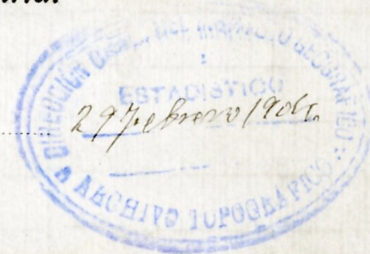 DIRECCIÓN GRAL. DEL INSTITUTO GEOGRÁFICO
ESTADISTICO
29 Febrero 1904.
ARCHIVO TOPOGRAFICO